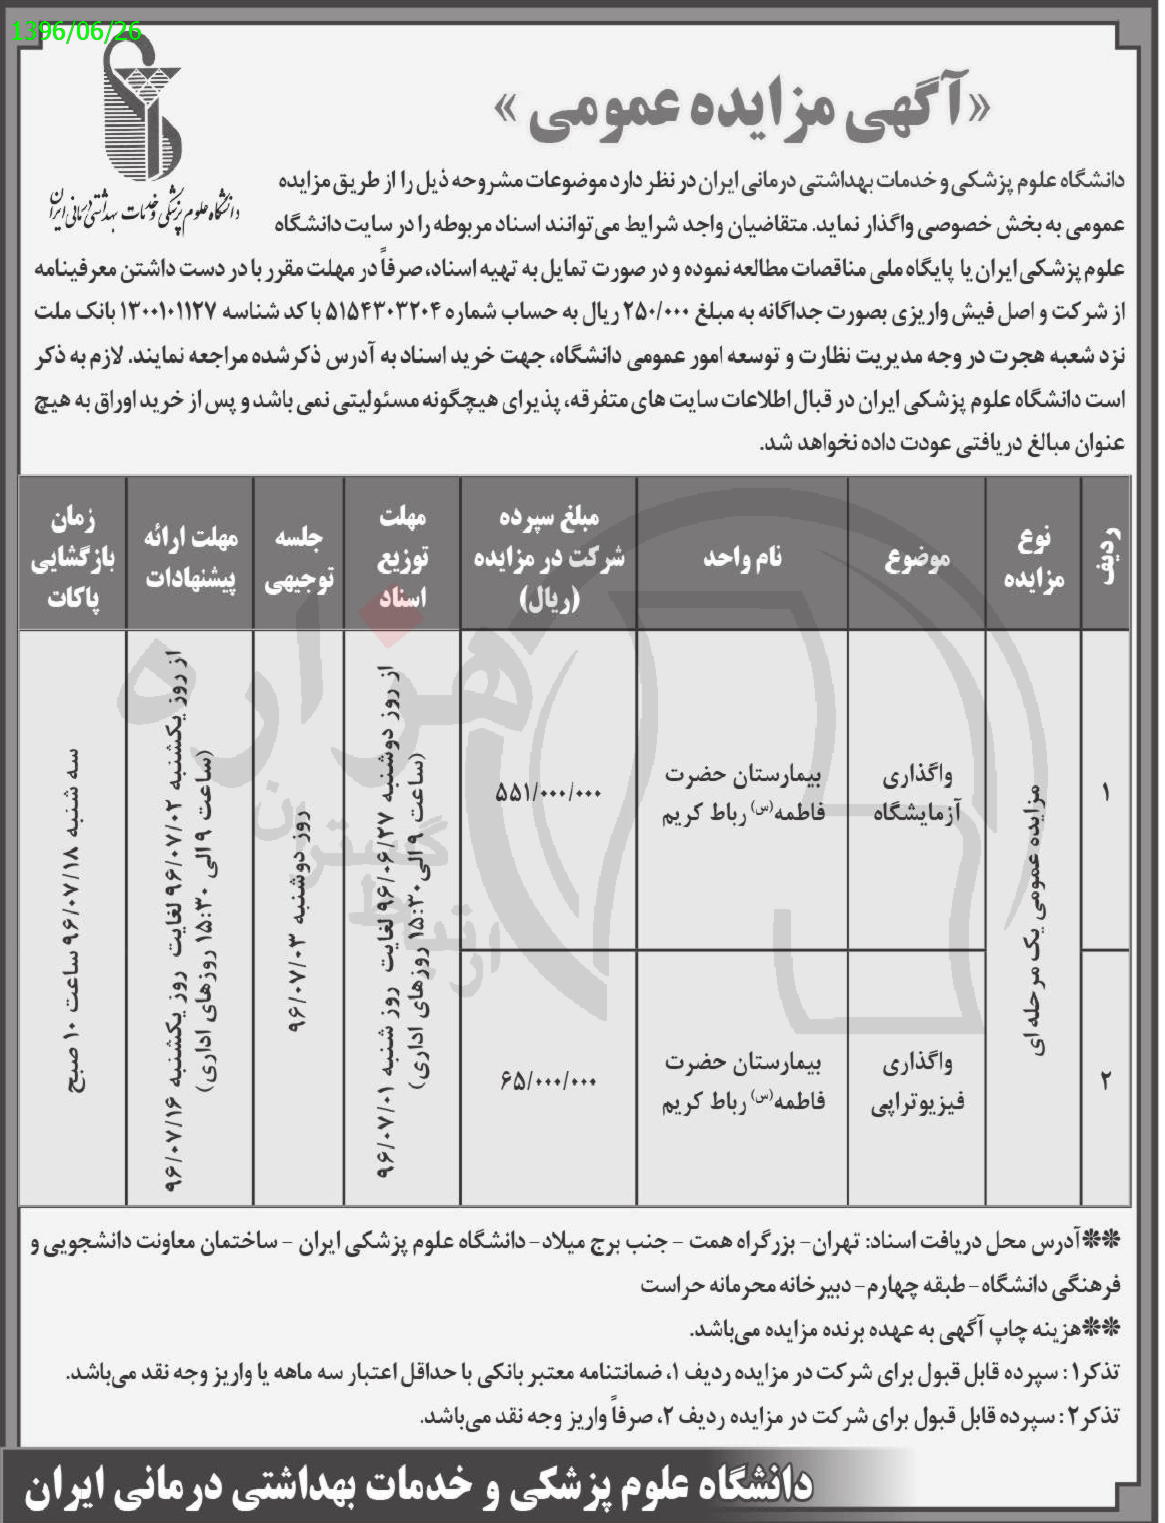 1396/06/26
«آگهی مزایده عمومی»
دانشگاه علوم پزشکی و خدمات بهداشتی درمانی ایران
دانشگاه علوم پزشکی و خدمات بهداشتی درمانی ایران در نظر دارد موضوعات مشروحه ذیل را از طریق مزایده
عمومی به بخش خصوصی واگذار نماید. متقاضیان واجد شرایط می توانند اسناد مربوطه را در سایت دانشگاه
علوم پزشکی ایران یا پایگاه ملی مناقصات مطالعه نموده و در صورت تمایل به تهیه اسناد، صرفاً در مهلت مقرر با در دست داشتن معرفینامه
از شرکت و اصل فیش واریزی بصورت جداگانه به مبلغ ۲۵۰/۰۰۰ ریال به حساب شماره ۵۱۵۴۳۰۳۲۰۴ با کد شناسه ۱۳۰۰۱۰۱۱۲۷ بانک ملت
نزد شعبه هجرت در وجه مدیریت نظارت و توسعه امور عمومی دانشگاه، جهت خرید اسناد به آدرس ذکرشده مراجعه نمایند. لازم به ذکر
است دانشگاه علوم پزشکی ایران در قبال اطلاعات سایت های متفرقه، پذیرای هیچگونه مسئولیتی نمی باشد و پس از خرید اوراق به هیچ
عنوان مبالغ دریافتی عودت داده نخواهد شد.
ردیف
نوع
مزایده
موضوع
نام واحد
مبلغ سپرده
شرکت در مزایده
(ریال)
مهلت
توزیع
اسناد
جلسه
توجیهی
مهلت ارائه
پیشنهادات
زمان
بازگشایی
پاکات
۱
مزایده عمومی یک مرحله ای
واگذاری
آزمایشگاه
بیمارستان حضرت
فاطمه(س) رباط کریم
۵۵۱/۰۰۰/۰۰۰
از روز دوشنبه ۹۶/۰۶/۲۷ لغایت روز شنبه ۹۶/۰۷/۰۱
(ساعت ۹ الی ۱۵:۳۰ روزهای اداری)
روز دوشنبه ۹۶/۰۷/۰۳
از روز یکشنبه ۹۶/۰۷/۰۲ لغایت روز یکشنبه ۹۶/۰۷/۱۶
(ساعت ۹ الی ۱۵:۳۰ روزهای اداری)
سه شنبه ۹۶/۰۷/۱۸ ساعت ۱۰ صبح
۲
واگذاری
فیزیوتراپی
بیمارستان حضرت
فاطمه(س) رباط کریم
۶۵/۰۰۰/۰۰۰
هزاره
گستران
ارتباط
**آدرس محل دریافت اسناد: تهران- بزرگراه همت - جنب برج میلاد- دانشگاه علوم پزشکی ایران - ساختمان معاونت دانشجویی و
فرهنگی دانشگاه- طبقه چهارم- دبیرخانه محرمانه حراست
**هزینه چاپ آگهی به عهده برنده مزایده می‌باشد.
تذکر۱: سپرده قابل قبول برای شرکت در مزایده ردیف ۱، ضمانتنامه معتبر بانکی با حداقل اعتبار سه ماهه یا واریز وجه نقد می‌باشد.
تذکر۲: سپرده قابل قبول برای شرکت در مزایده ردیف ۲، صرفاً واریز وجه نقد می‌باشد.
دانشگاه علوم پزشکی و خدمات بهداشتی درمانی ایران